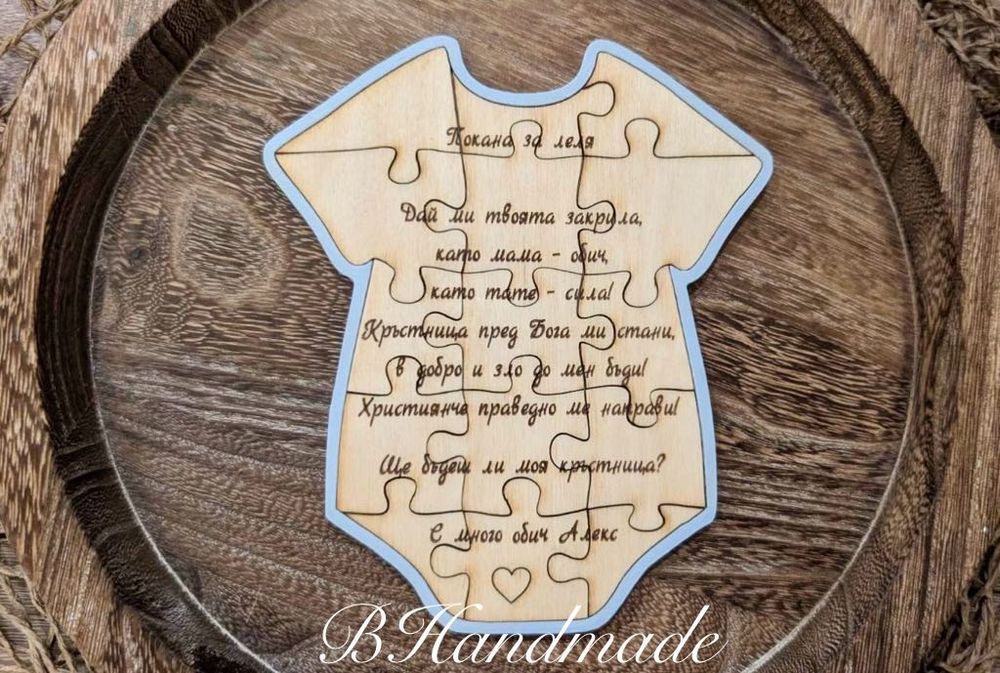 Покана за леля
Дай ми твоята закрила,
като мама - обич,
като тате - сила!
Кръстница пред Бога ми стани,
в добро и зло до мен бъди!
Християнче праведно ме направи!
Ще бъдеш ли моя кръстница?
С много обич Алекс
BHandmade